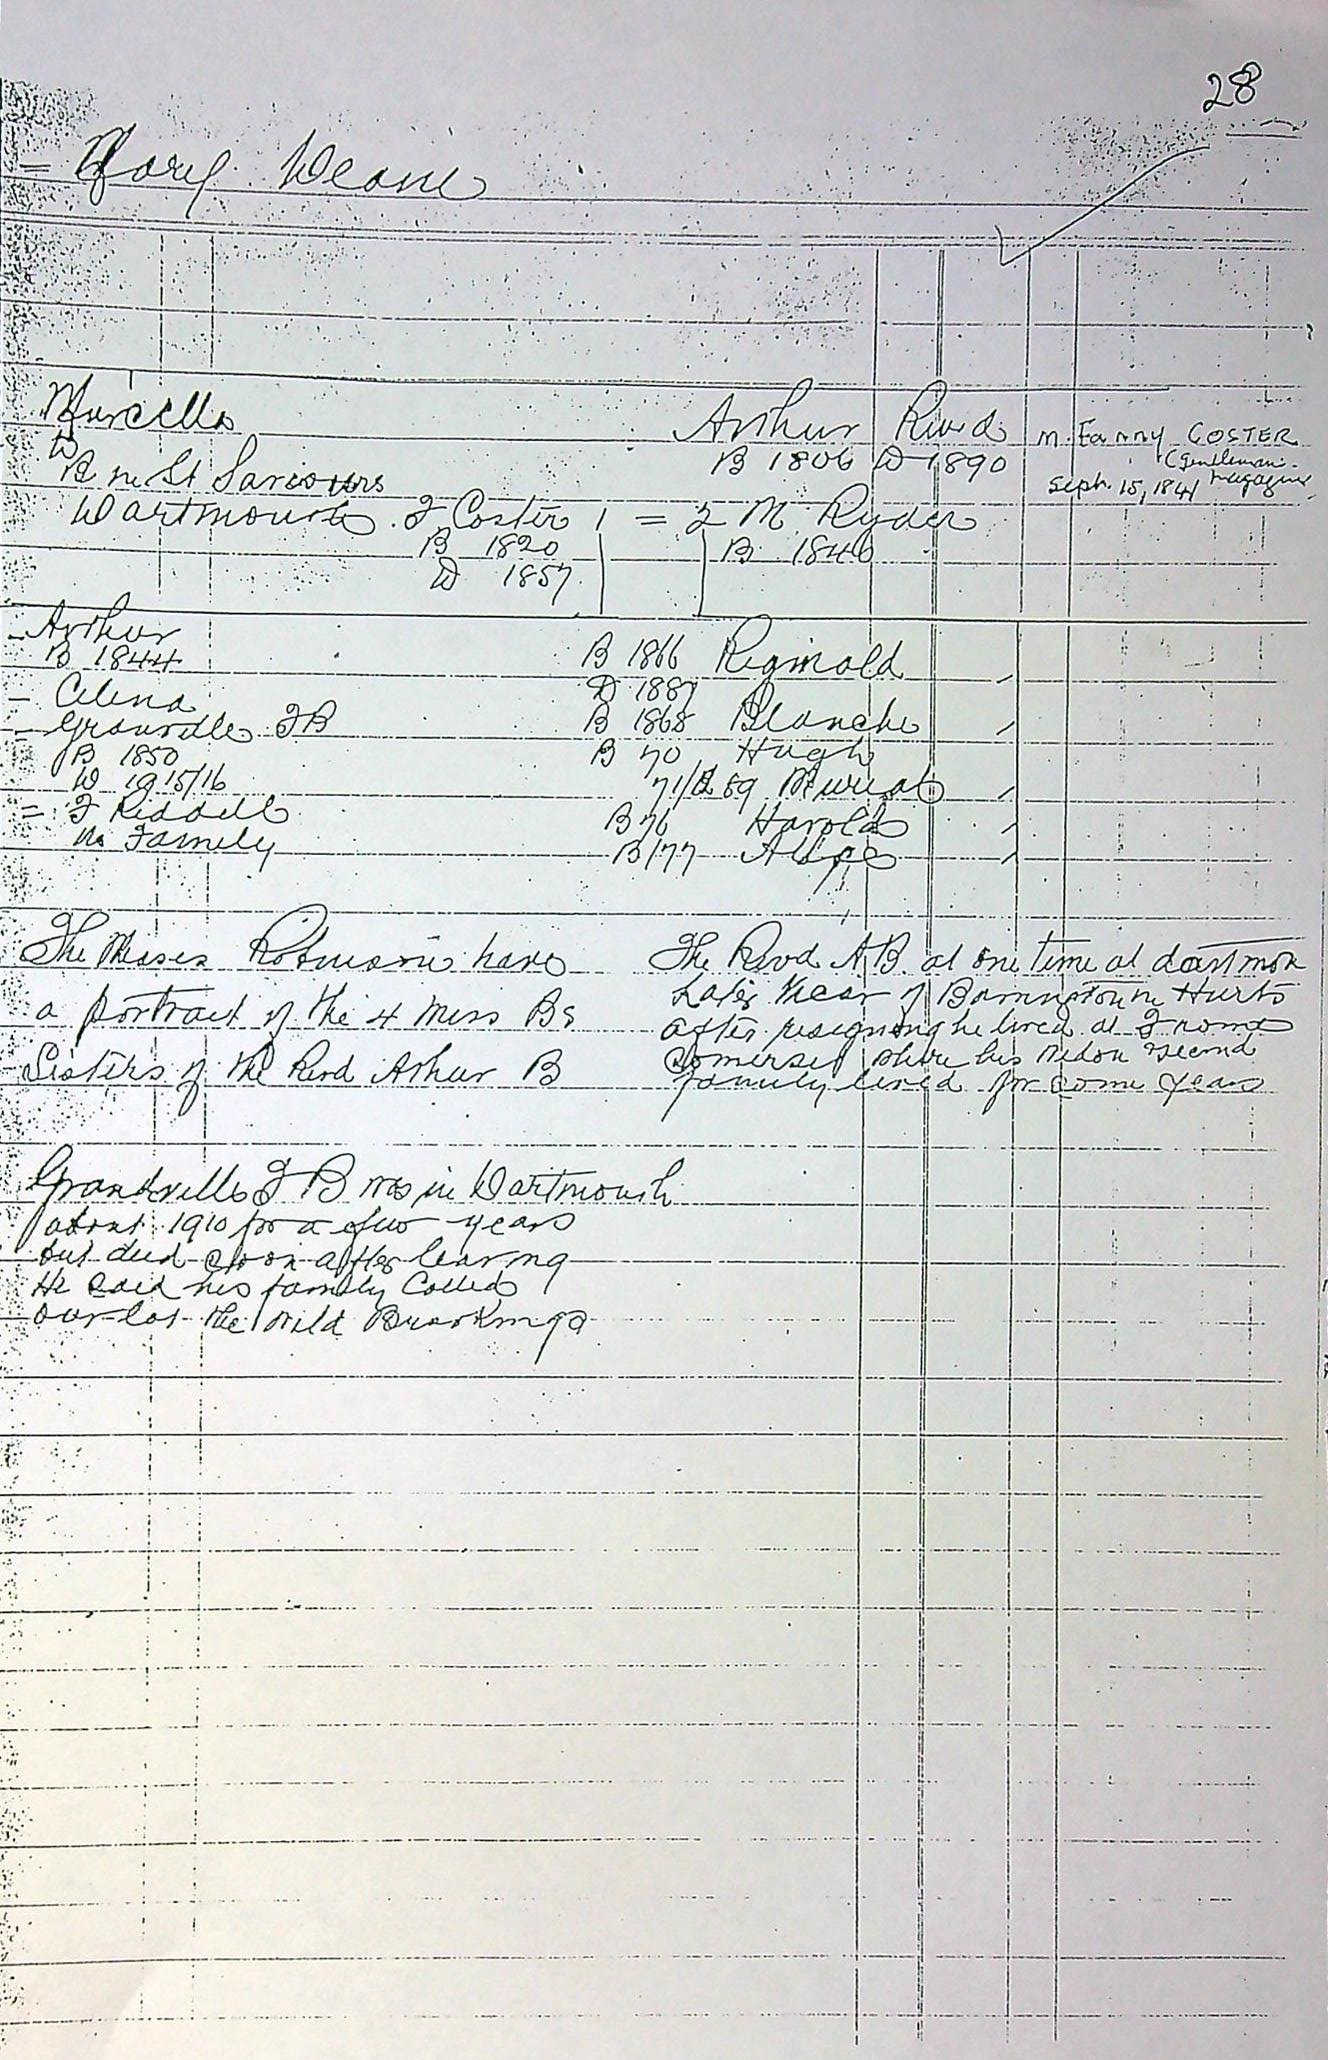 28
= Mary Deane
Marcella
D
B in St Saviours
Dartmouth
Arthur Rivd
B 1806 D 1890
m. Fanny COSTER
(Gentleman's
Magazine
Sept. 15, 1841
F Coster 1 = 2 M Ryder
B 1820
D 1857
B 1840
Arthur
B 1844
- Celena
- Granville FB
B 1850
D 1915/16
= F Riddell
no Family
B 1866 Reginald
D 1887
B 1868 Blanche
B 70 Hugh
71/D 89 Muriel
B 76 Harold
B/77
The Misses Robinson have
a portrait of the 4 Miss Bs
Sisters of the Revd Arthur B
The Revd A B. at one time at dartmou
Later Vicar of in Hurts
after resigning he lived at Frome
Somerset where his widow & second
family lived for some years
Grandville F B was in Dartmouth
about 1910 for a few years
but died soon after leaving
He said his family Called
our lot the Wild Brookings